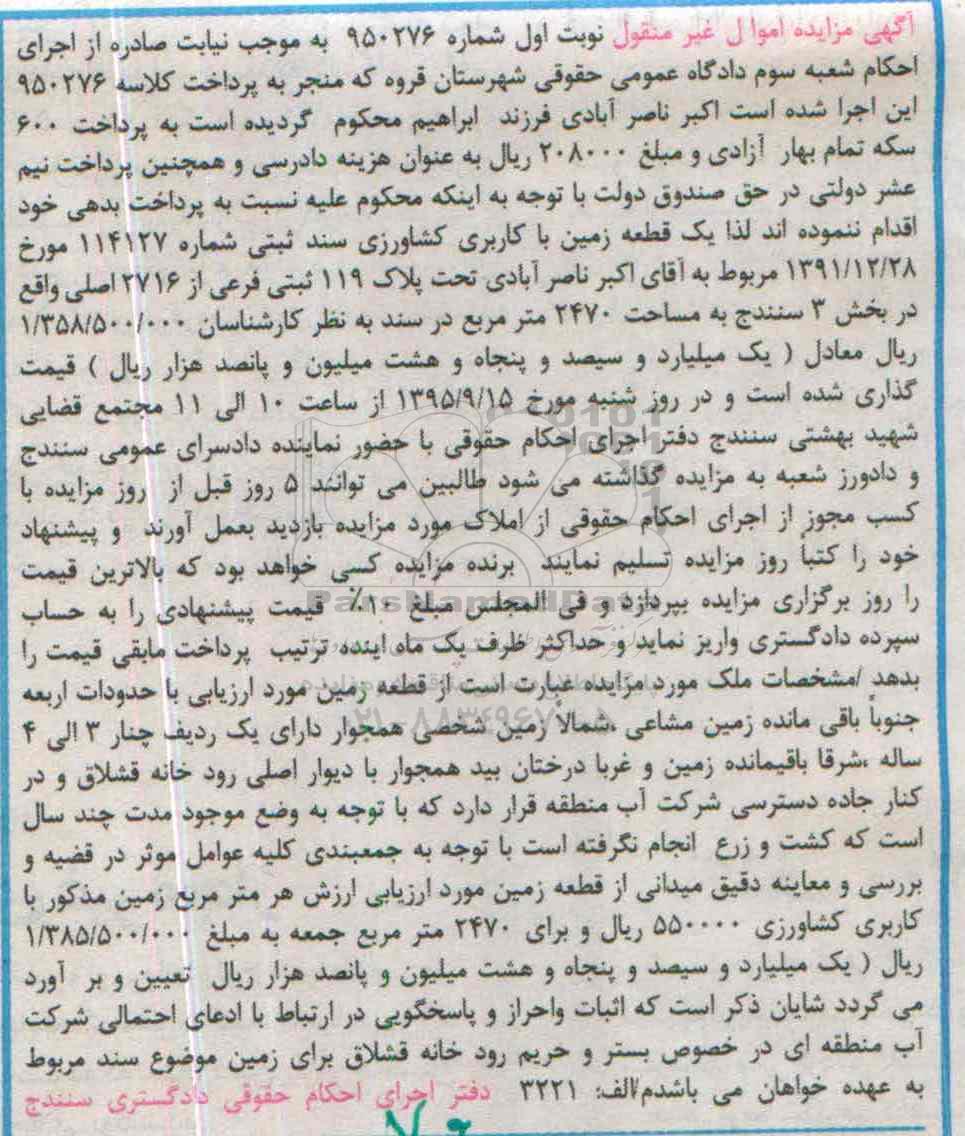 آگهی مزایده اموا ل غیر منقول نوبت اول شماره ۹۵۰۲۷۶ به موجب نیابت صادره از اجرای
احکام شعبه سوم دادگاه عمومی حقوقی شهرستان قروه که منجر به پرداخت کلاسه ۹۵۰۲۷۶
این اجرا شده است اکبر ناصر آبادی فرزند ابراهیم محکوم گردیده است به پرداخت ۶۰۰
سکه تمام بهار آزادی و مبلغ ۲۰۸۰۰۰ ریال به عنوان هزینه دادرسی و همچنین پرداخت نیم
عشر دولتی در حق صندوق دولت با توجه به اینکه محکوم علیه نسبت به پرداخت بدهی خود
اقدام ننموده اند لذا یک قطعه زمین با کاربری کشاورزی سند ثبتی شماره ۱۱۴۱۲۷ مورخ
۱۳۹۱/۱۲/۲۸ مربوط به آقای اکبر ناصر آبادی تحت پلاک ۱۱۹ ثبتی فرعی از ۲۷۱۶ اصلی واقع
در بخش ۳ سنندج به مساحت ۲۴۷۰ متر مربع در سند به نظر کارشناسان ۱/۳۵۸/۵۰۰/۰۰۰
ریال معادل ( یک میلیارد و سیصد و پنجاه و هشت میلیون و پانصد هزار ریال ) قیمت
گذاری شده است و در روز شنبه مورخ ۱۳۹۵/۹/۱۵ از ساعت ۱۰ الی ۱۱ مجتمع قضایی
شهید بهشتی سنندج دفتر اجرای احکام حقوقی با حضور نماینده دادسرای عمومی سنندج
و دادورز شعبه به مزایده گذاشته می شود طالبین می توانند ۵ روز قبل از روز مزایده با
کسب مجوز از اجرای احکام حقوقی از املاک مورد مزایده بازدید بعمل آورند و پیشنهاد
خود را کتباً روز مزایده تسلیم نمایند برنده مزایده کسی خواهد بود که بالاترین قیمت
را روز برگزاری مزایده بپردازد و فی المجلس مبلغ ۱۰٪ قیمت پیشنهادی را به حساب
سپرده دادگستری واریز نماید و حداکثر ظرف یک ماه اینده ترتیب پرداخت مابقی قیمت را
بدهد /مشخصات ملک مورد مزایده عبارت است از قطعه زمین مورد ارزیابی با حدودات اربعه
جنوباً باقی مانده زمین مشاعی ،شمالاً زمین شخصی همجوار دارای یک ردیف چنار ۳ الی ۴
ساله ،شرقا باقیمانده زمین و غربا درختان بید همجوار با دیوار اصلی رود خانه قشلاق و در
کنار جاده دسترسی شرکت آب منطقه قرار دارد که با توجه به وضع موجود مدت چند سال
است که کشت و زرع انجام نگرفته است با توجه به جمعبندی کلیه عوامل موثر در قضیه و
بررسی و معاینه دقیق میدانی از قطعه زمین مورد ارزیابی ارزش هر متر مربع زمین مذکور با
کاربری کشاورزی ۵۵۰۰۰۰ ریال و برای ۲۴۷۰ متر مربع جمعه به مبلغ ۱/۳۸۵/۵۰۰/۰۰۰
ریال ( یک میلیارد و سیصد و پنجاه و هشت میلیون و پانصد هزار ریال تعیین و بر آورد
می گردد شایان ذکر است که اثبات واحراز و پاسخگویی در ارتباط با ادعای احتمالی شرکت
آب منطقه ای در خصوص بستر و حریم رود خانه قشلاق برای زمین موضوع سند مربوط
به عهده خواهان می باشدم/الف: ۳۲۲۱ دفتر اجرای احکام حقوقی دادگستری سنندج
ParsNamadData